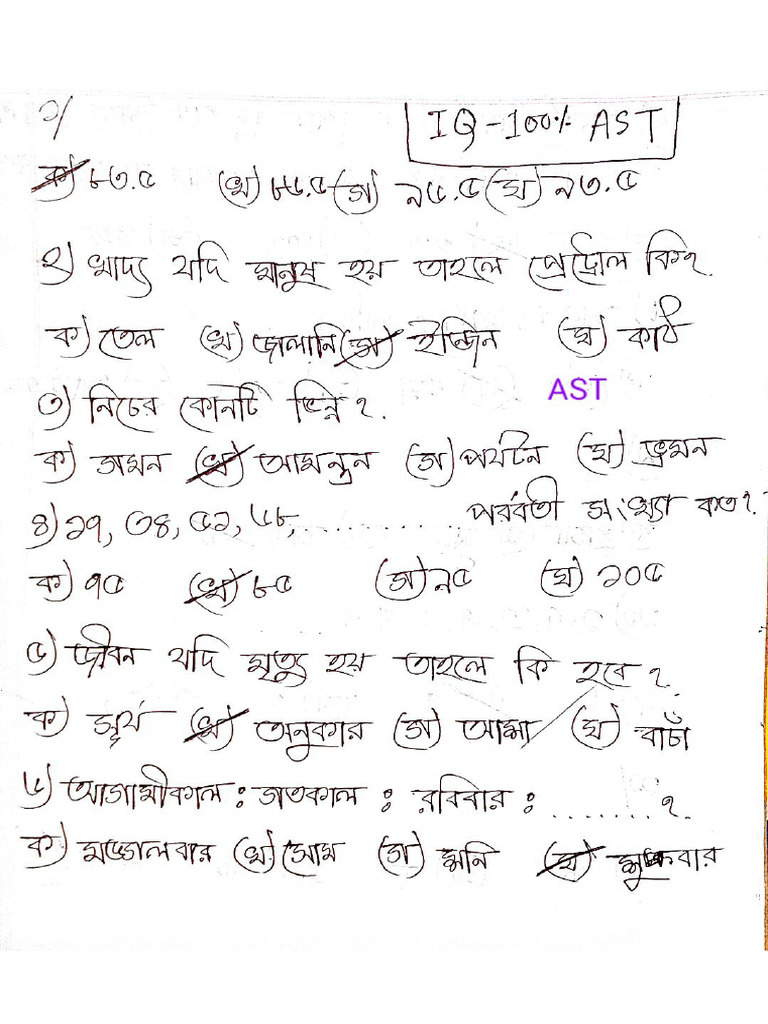 ১/ IQ-100% AST
ক) ৮৩.৫ খ) ৮৬.৫ গ) ৯৫.৫ ঘ) ৯৩.৫
২) খাদ্য যদি মানুষ হয় তাহলে পেট্রোল কি?
ক) তেল খ) জ্বালানি গ) ইঞ্জিন ঘ) কাঠ
AST
৩) নিচের কোনটি ভিন্ন?
ক) গমন খ) আমন্ত্রন গ) পর্যটন ঘ) ভ্রমন
৪) ১৭, ৩৪, ৫১, ৬৮, .......... পরবর্বতী সংখ্যা কত?
ক) ৭৫ খ) ৮৫ গ) ৯৫ ঘ) ১০৫
৫) জীবন যদি মৃত্যু হয় তাহলে কি হবে?
ক) সূর্য খ) অন্ধকার গ) আত্মা ঘ) বাচাঁ
৬) আগামীকাল : গতকাল : রবিবার : ....... ?
ক) মঙ্গলবার খ) সোম গ) শনি ঘ) শুক্রবার